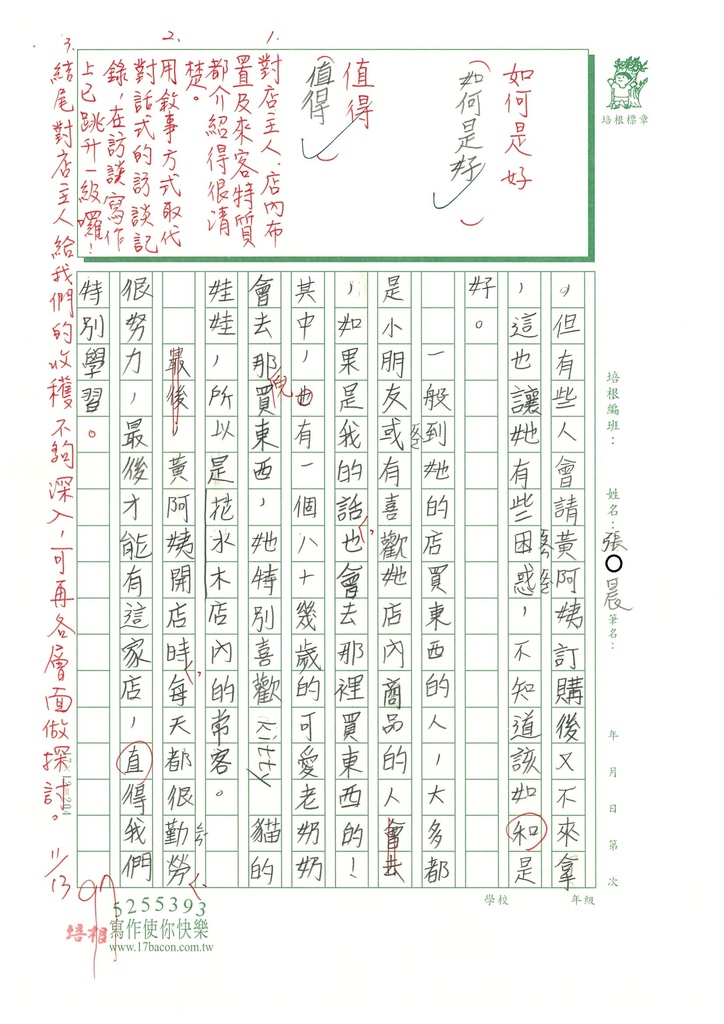 培根標章
如何是好
(如何是好)
值得
(值得)
1. 對店主人、店內布
置及來客特質
都介紹得很清
楚。
2. 用敘事方式取代
對話式的訪談記
錄,在訪談寫作
上已跳升一級囉!
3. 結尾對店主人給我們的收穫不夠深入,可再各層面做探討。 11/13
97
培根編班:
姓名:張○晨
筆名:
年 月 日 第 次
。但有些人會請黃阿姨訂購後又不來拿
,這也讓她有些困惑,不知道該如和是
好。
一般到她的店買東西的人,大多都
是小朋友或有喜歡她店內商品的人會去
,如果是我的話也會去那裡買東西的!
其中,也有一個八十幾歲的可愛老奶奶
會去那買東西,她特別喜歡kitty貓的
娃娃,所以是花水木店內的常客。
最後,黃阿姨開店時每天都很勤勞
很努力,最後才能有這家店,直得我們
特別學習。
倪
學校
年級
培根
5255393
寫作使你快樂
www.17bacon.com.tw